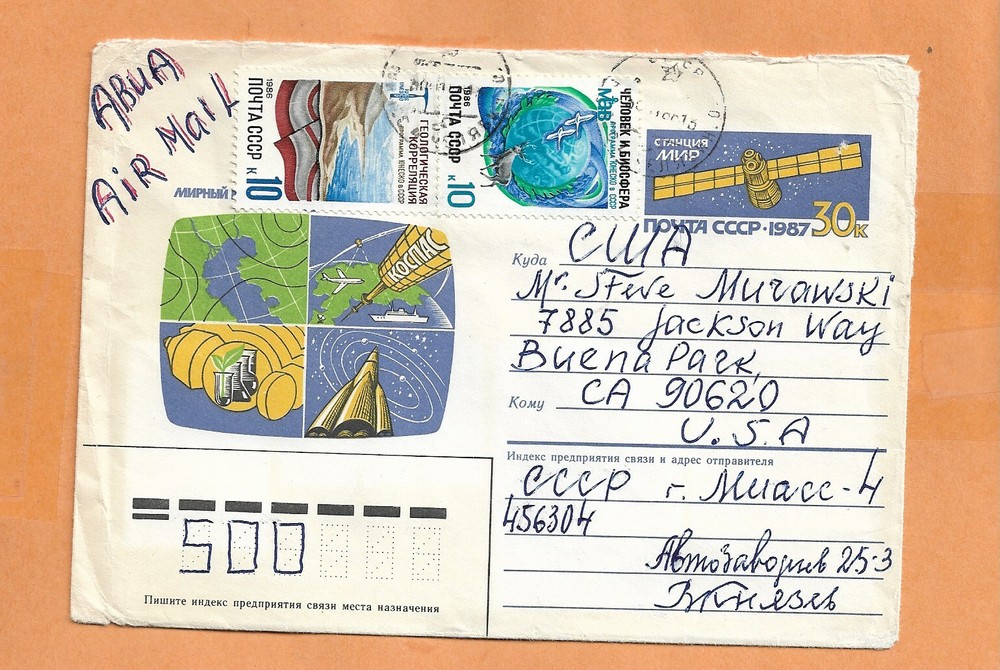 АВИА
AiR MaiL
МИРНЫЙ
1986
ПОЧТА СССР
к 10
ГЕОЛОГИЧЕСКАЯ
КОРРЕЛЯЦИЯ
ПРОГРАММА ЮНЕСКО В СССР
1986
ПОЧТА СССР
к 10
ЧЕЛОВЕК И БИОСФЕРА
МАВ
ПРОГРАММА ЮНЕСКО В СССР
СТАНЦИЯ
МИР
ПОЧТА СССР·1987 30к
КОСПАС
Куда США
Mr. Steve Murawski
7885 Jackson Way
Buena Park,
Кому CA 90620
U.S.A
Индекс предприятия связи и адрес отправителя
СССР г. Миасс-4
456304
Автозаводцев 25-3
500
Пишите индекс предприятия связи места назначения